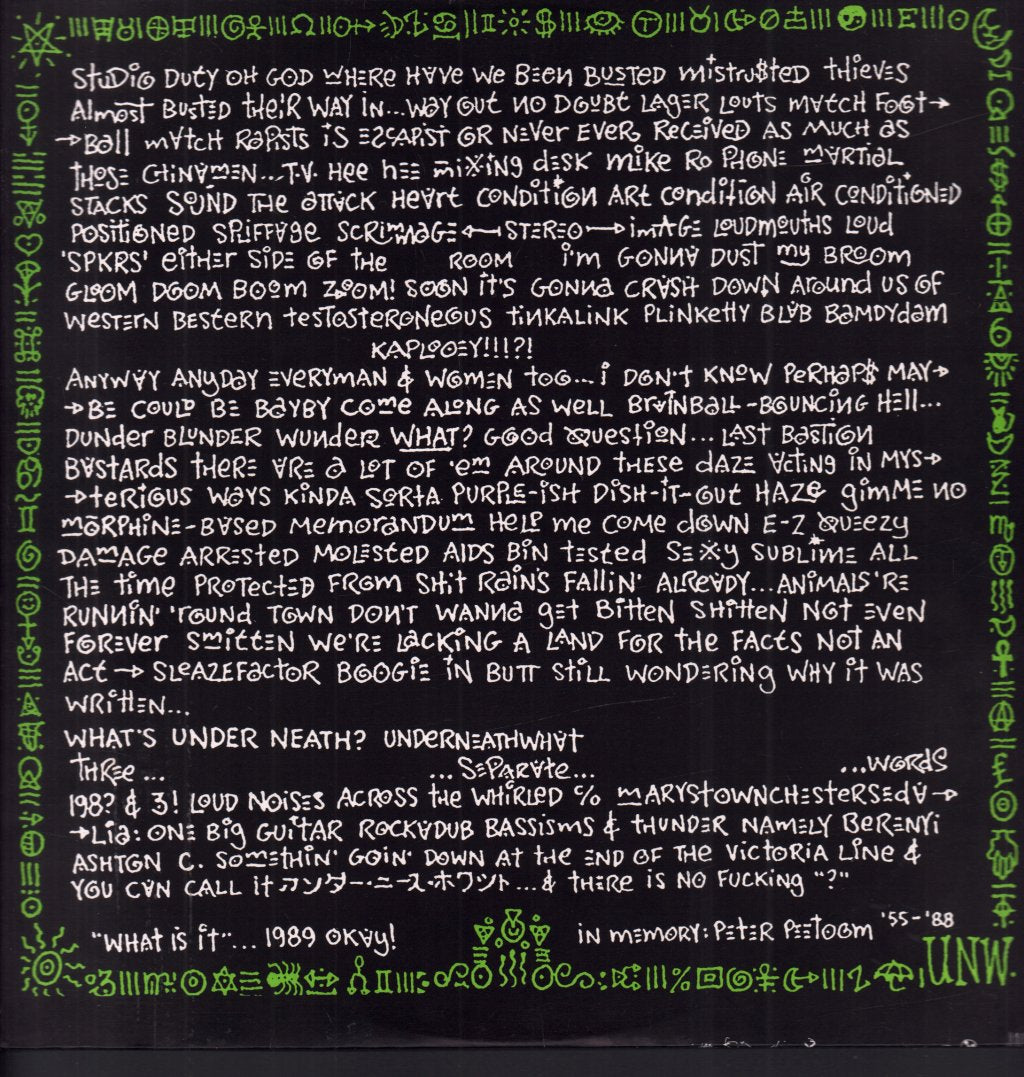 StuDiO Duty OH GOD WHERE HAVE We BEEn BUSTED mistru$ted tHiEVES
Almost BUSTED theiR WAY in...WAy Out no DOuBt LAGER Louts mAtCH FOOt→
→Ball mAtCH RApists iS ESCAPiST OR NEVER EVER RecEivED AS MuCH as
tHOSE CHINAMEN...T.V. Hee hEE miXing dESK mike Ro PHONE mARTiAL
STACKS SOUND THe attACK HeArt CONDitiON ARt condition AiR CONDitiONED
POSitiONED SPiFFAGE SCRiMMAGE←—STEREO—→imAGE LOUDMOUTHS LOUd
'SPKRS' eitHER SiDE OF the ROOM i'm GONNA DUST my BROOm
GLOOM DOOM BOOm ZOOM! SOON it'S GONNa CRASH DOWN Around US OF
WESTERN BEStern teStOSteRONEOUS tiNKALiNK PLiNKEtty BLAB BamDydam
KAPLOOEY!!!?!
ANYWAY ANyDAy EVERyMAN & WOMEN TOO...i DON't KNOW PERHAP$ MAY→
→BE COULD BE BAyBy COme ALONG AS WELL BRAiNBALL-BOUNCiNG HEll...
DUNder BLUNDER WUNdER WHAT? GOOd QUestiON... LASt BAStiON
BASTARds tHERE ARE a LOt OF 'em AROUND tHESE dAZE ActiNG iN MYS→
→tERiOUS WAYS KiNDA SORtA PURPLE-iSH DiSH-it-Out HAZe gimME NO
mORPHiNE-BASED MEMORANDUm HELP me COME dOWN E-Z QUEEZy
DAmAGE ARRESted MOLESted AIDS BiN tESted SEXy SUBLimE ALL
THE time PROtEctED FROM SHit RaiNS FALLiN' ALREADY...ANiMALS'RE
RUNNiN' 'ROUNd TOWN DON't WANNa gEt BittEN SHittEN NOt EVEN
FOREVER SmittEN WE'RE LACKiNG A LAND FOR the FACtS NOt AN
ACt → SLEAZEFACtOR BOOGiE iN BUTT StiLL WONDERiNg WHY it WAS
WRittEN...
WHAT'S UNDER NEATH? UNDERNEATHWHAt
tHREe ... ... SEPARAte... ...WORdS
198? & 3! LOUD NOiSES ACROSS the WHiRLED c/o mARYStOWNCHEStERSEdA→
→Lia: ONE BiG GUitAR ROCKADUB BASSiSMS & tHUNDER NAMELY BERENYi
ASHtON C. SOmEtHiN' GOiN' DOWN At the END OF THE ViCtORiA LiNE &
YOU CAN CALL it アンダー・ニース・ホワット...& tHERE iS NO FUCKiNg "?"
"WHAt iS it"... 1989 OKAy!
iN mEMORY: PEtER PEEtOOm '55-'88
UNW.